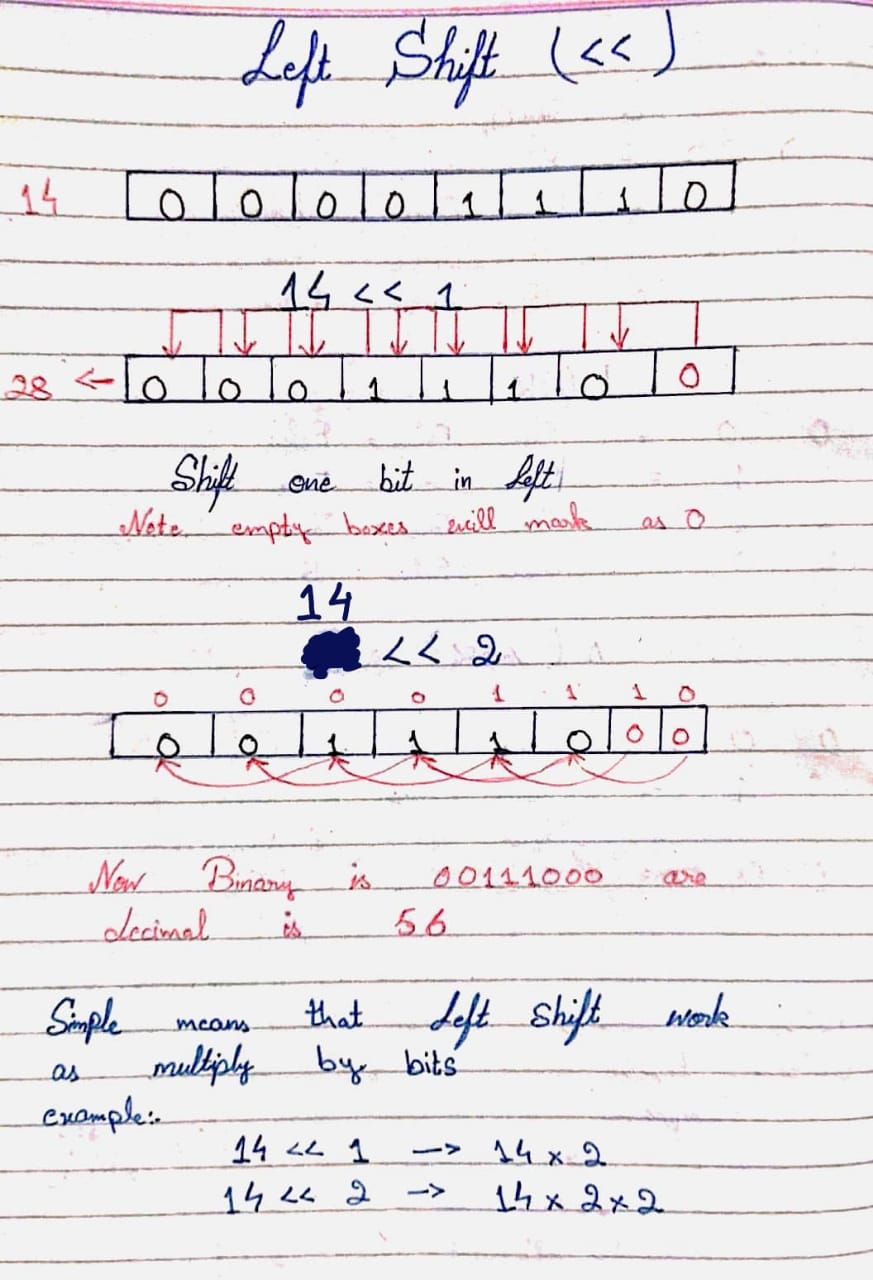 Left Shift (<<)
14 0 0 0 0 1 1 1 0
14 << 1
28 ← 0 0 0 1 1 1 0 0
Shift one bit in left
Note empty boxes will mark as 0
14
<< 2
0 0 0 0 1 1 1 0
0 0 1 1 1 0 0 0
Now Binary is 00111000 are
decimal is 56
Simple means that Left Shift work
as multiply by bits
example:-
14 << 1 -> 14 x 2
14 << 2 -> 14 x 2 x 2